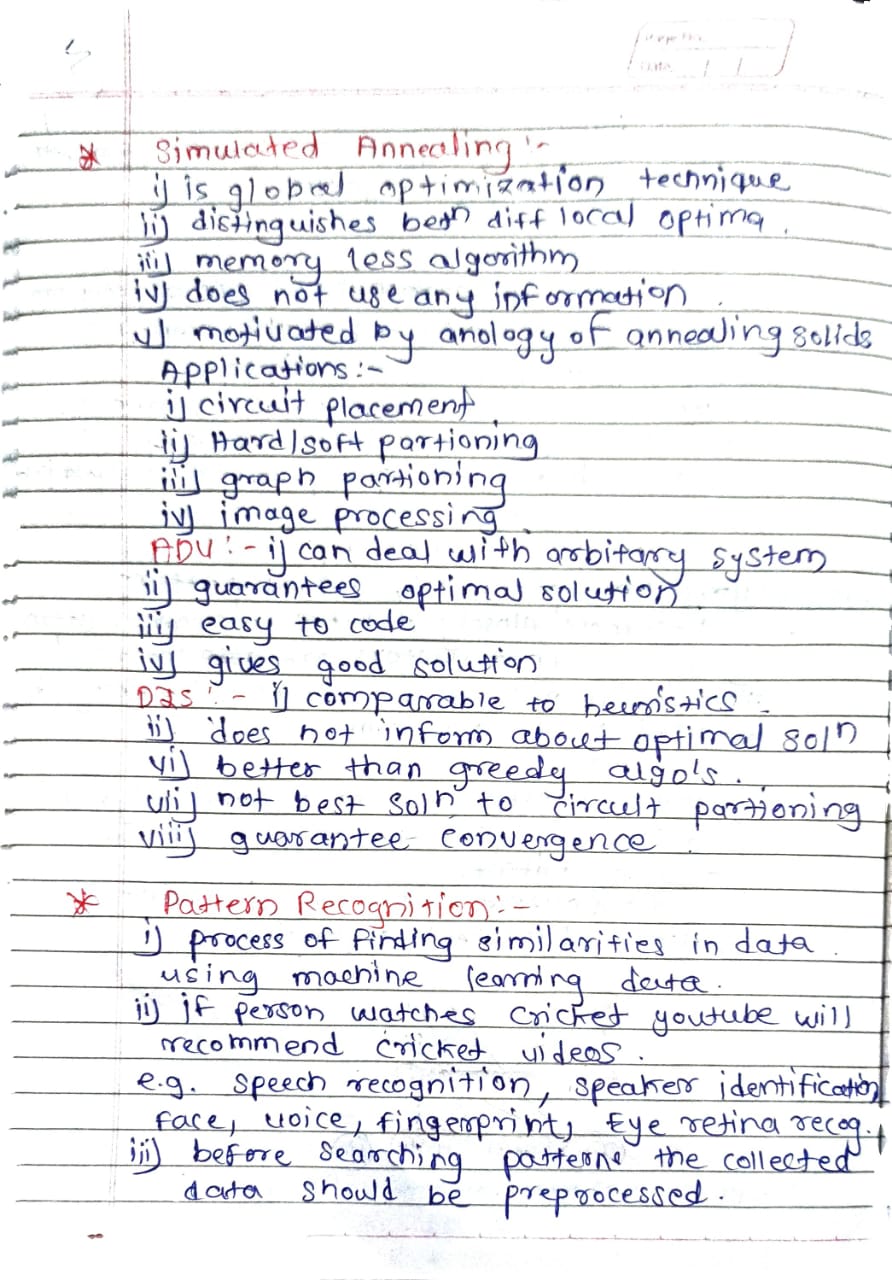 * Simulated Annealing :-
i) is global optimization technique
ii) distinguishes betn diff local optima.
iii) memory less algorithm
iv) does not use any information.
v) motivated by anology of annealing solids
Applications :-
i) circuit placement
ii) Hard/soft partioning
iii) graph partioning
iv) image processing.
ADV :- i) can deal with arbitary system
ii) guarantees optimal solution.
iii) easy to code
iv) gives good solution
DIS :- i) comparable to heuristics.
ii) does not inform about optimal soln
vi) better than greedy algo's.
vii) not best soln to circuit partioning
viii) guarantee convergence.
* Pattern Recognition :-
i) process of finding similarities in data.
using machine learning data.
ii) if person watches cricket youtube will
recommend cricket videos.
e.g. speech recognition, speaker identification,
face, voice, fingerprint, Eye retina recog.
iii) before searching patterns the collected
data should be preprocessed.